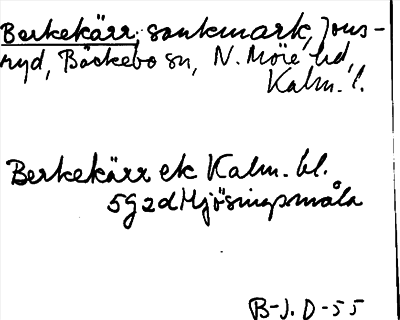 Berkekärr, sankmark, Jons-
ryd, Bäckebo sn, N. Möre hd,
Kalm. l.
Berkekärr ek Kalm. bl.
5G2d Mjösingsmåla
B-J. D-55